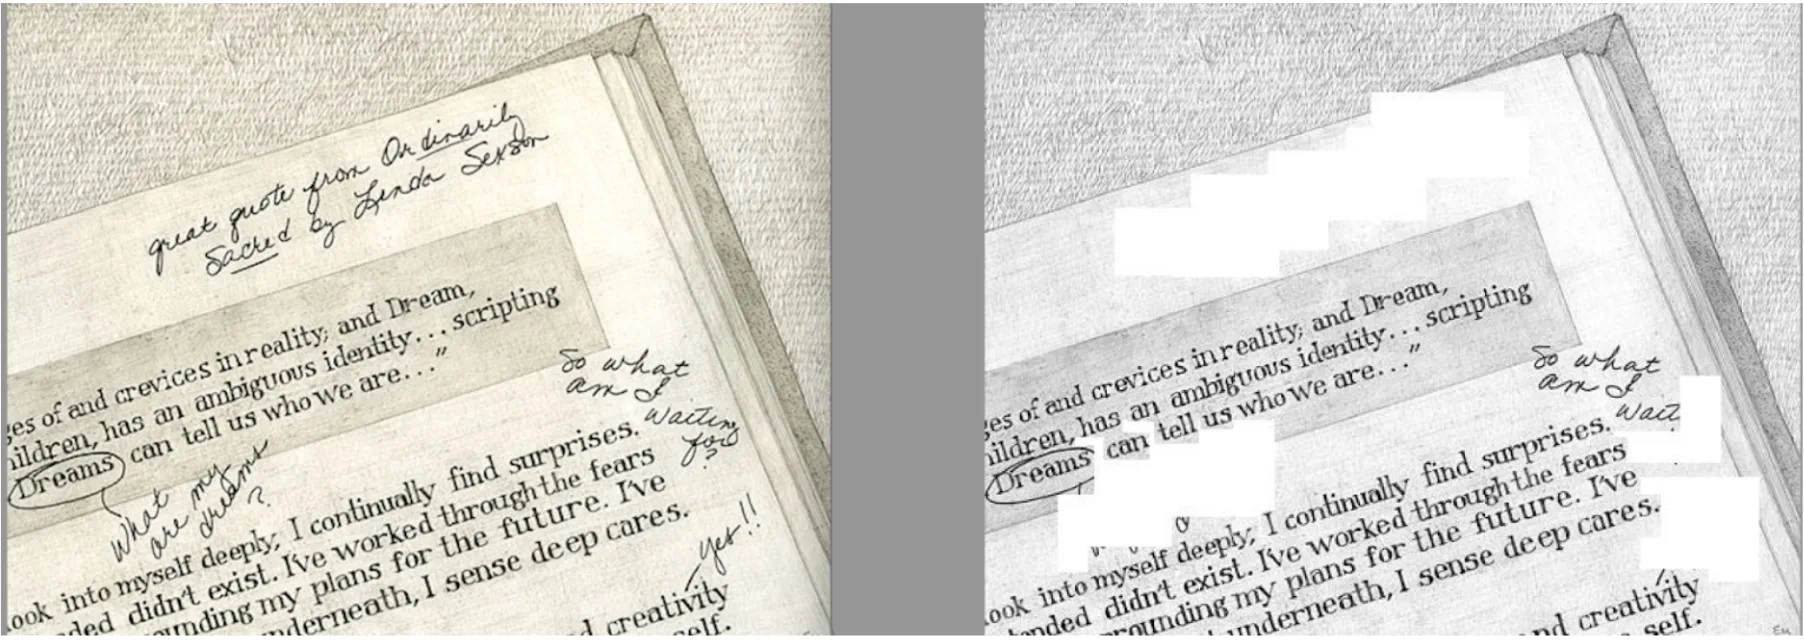 great quote from Ordinarily
Sacred by Linda Sexson
ges of and crevices in reality; and Dream,
ildren, has an ambiguous identity... scripting
Dreams can tell us who we are..."
So what
am I
waiting
for
?
What
are my
dreams
?
ook into myself deeply; I continually find surprises.
ded didn't exist. I've worked through the fears
ounding my plans for the future. I've
nderneath, I sense deep cares.
yes!!
d creativity
self.
ges of and crevices in reality; and Dream,
ildren, has an ambiguous identity... scripting
Dreams can tell us who we are..."
So what
am I
wait
ook into myself deeply; I continually find surprises.
anded didn't exist. I've worked through the fears
rounding my plans for the future. I've
underneath, I sense deep cares.
nd creativity
self.